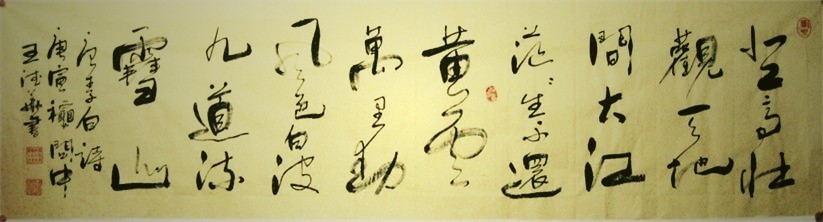 登高壯
觀天地
間大江
茫茫去不還
黄雲
萬里動
風色白波
九道流
雪山
唐李白詩
庚寅穐 中
王德 書